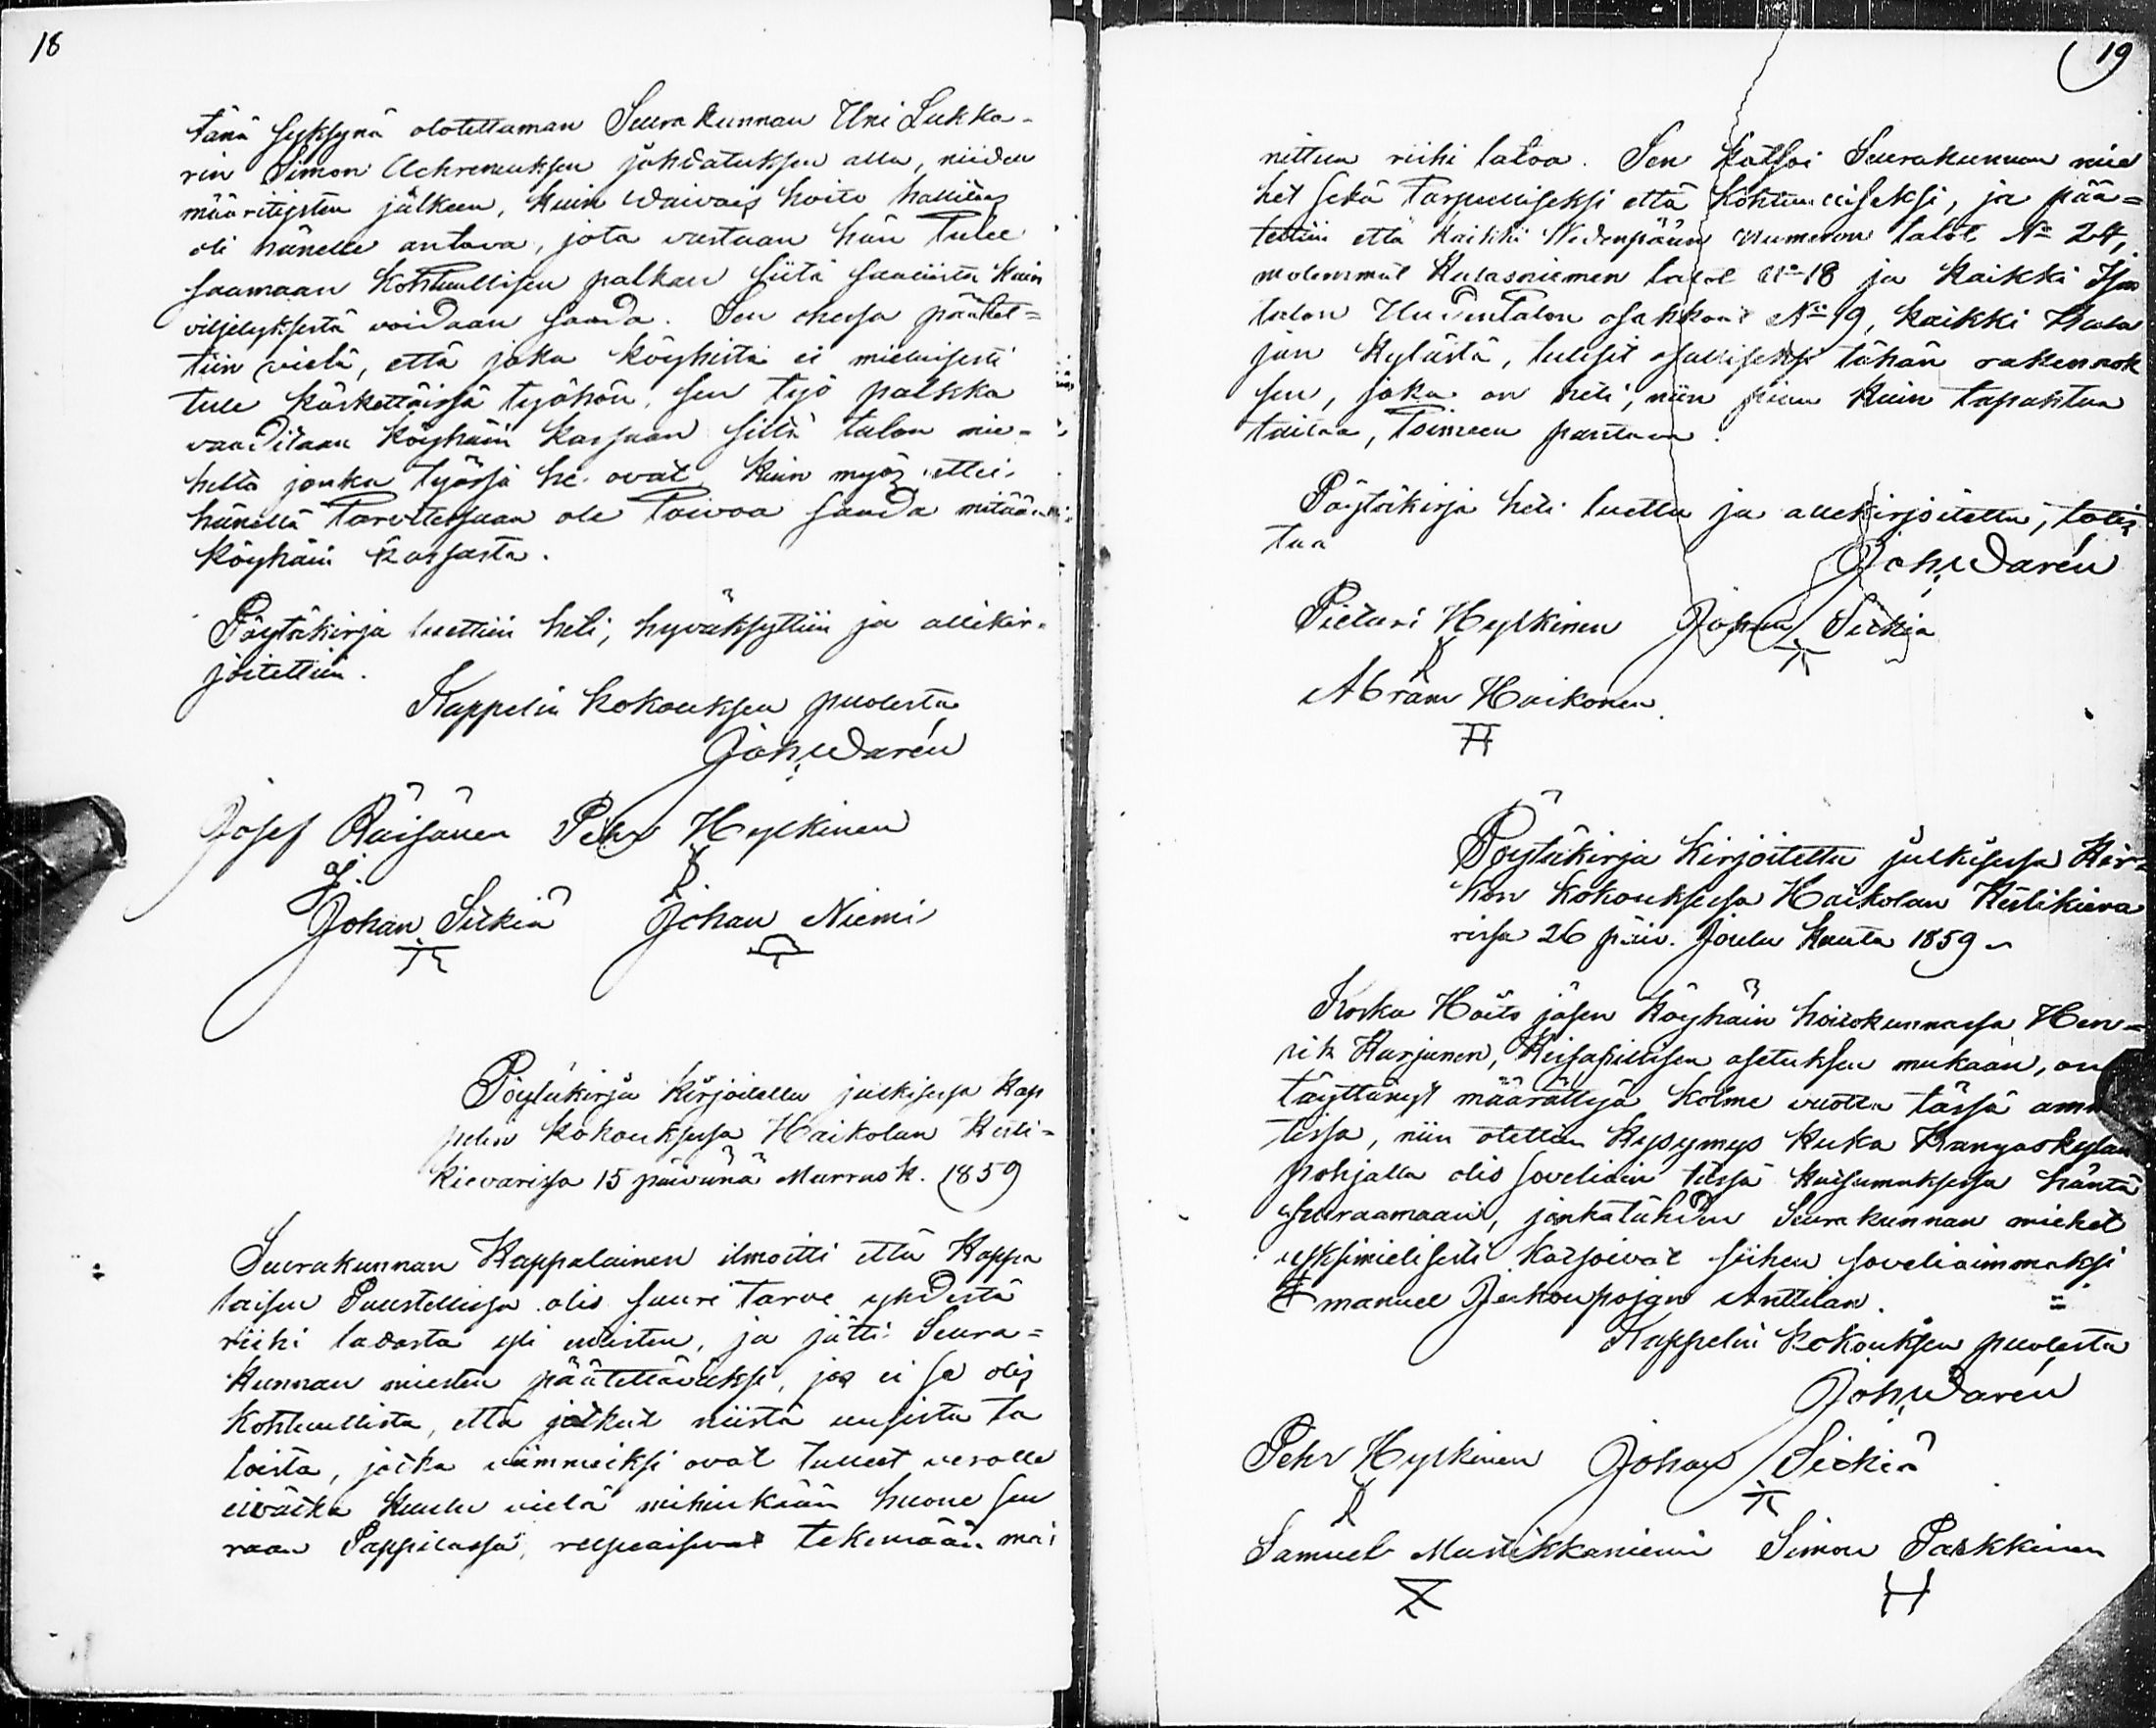 18
tänä syksynä olotettaman Seurakunnan Uni Lukka-
rin Simon Achrenuksen johdatuksen alla, niiden
määritysten jälkeen, kuin Waivais hoito hallitus
oli hänelle antava, jota vastaan hän tulee
saamaan kohtuullisen palkan siitä saaliista kuin
viljelyksestä voidaan saada. Sen ohessa päätet-
tiin vielä, että joka köyhistä ei mieluisesti
tule käskettäissä työhön, sen työ palkka
vaaditaan köyhäin kassaan siltä talon mie-
heltä jonka työssä he ovat, kuin myös ettei
hänellä tarvitessaan ole toivoa saada mitään
köyhäin kassasta.
Pöytäkirja luettiin heti, hyväksyttiin ja allekir-
joitettiin.
Kappelin kokouksen puolesta
Joh. Warén
Josef Räisänen Pehr Hylkinen
Johan Sirkiä Johan Niemi
Pöytäkirja kirjoitettu julkisessa Kap
pelin kokouksessa Haikolan Kesti-
kievarissa 15 päivänä Marrask. 1859
Seurakunnan Kappalainen ilmoitti että Kappa
laisen Puustellissa olis suuri tarve yhdestä
riihi ladosta yli muitten, ja jätti Seura-
kunnan miesten päätettäväksi, jos ei se olis
kohtuullista, että jotkut niistä uusista ta
loista, jotka viimmeiksi ovat tulleet verolle
eivätkä kuulu vielä mihinkään huone seu
raan Pappilassa, velpaisivat tekemään mai
19
nittua riihi latoa. Sen katsoi Seurakunnan mie
het sekä tarpeelliseksi että kohtuulliseksi, ja pää-
tettiin että kaikki Wedenpään numeron talot No 24,
molemmat Kulasniemen talot No 18 ja kaikki Ison
talon Uuden Talon osakkaat No 19, kaikki Kala
jan kylästä, tulisit osalliseksi tähän rakennok
seen, joka on heti, niin pian kuin tapahtua
taitaa, toimeen pantava.
Pöytäkirja heti luettu ja allekirjoitettu, todis
taa
Joh. Warén
Pietari Hylkinen Johan Sirkiä
Abram Haikonen
Pöytäkirja kirjoitettu julkisessa Kir-
kon kokouksessa Haikolan Kestikieva
rissa 26 päiv. Joulu kuuta 1859
Koska Hoito jäsen köyhäin hoitokunnassa Hen-
rik Karjunen, Keisarillisen asetuksen mukaan, on
täyttänyt määrättyjä kolme vuotta tässä am
tissa, niin otettiin kysymys kuka Kangaskylän
pohjalla olis soveliain tässä kutsumuksessa häntä
seuraamaan, jonkatähden Seurakunnan miehet
yksimielisesti katsoivat siihen soveliaimmaksi
Emanuel Juhonpojan Anttilan.
Kappelin kokouksen puolesta
Joh. Warén
Pehr Hylkinen Johan Sirkiä
Samuel Mustikkaniemi Simon Parkkinen